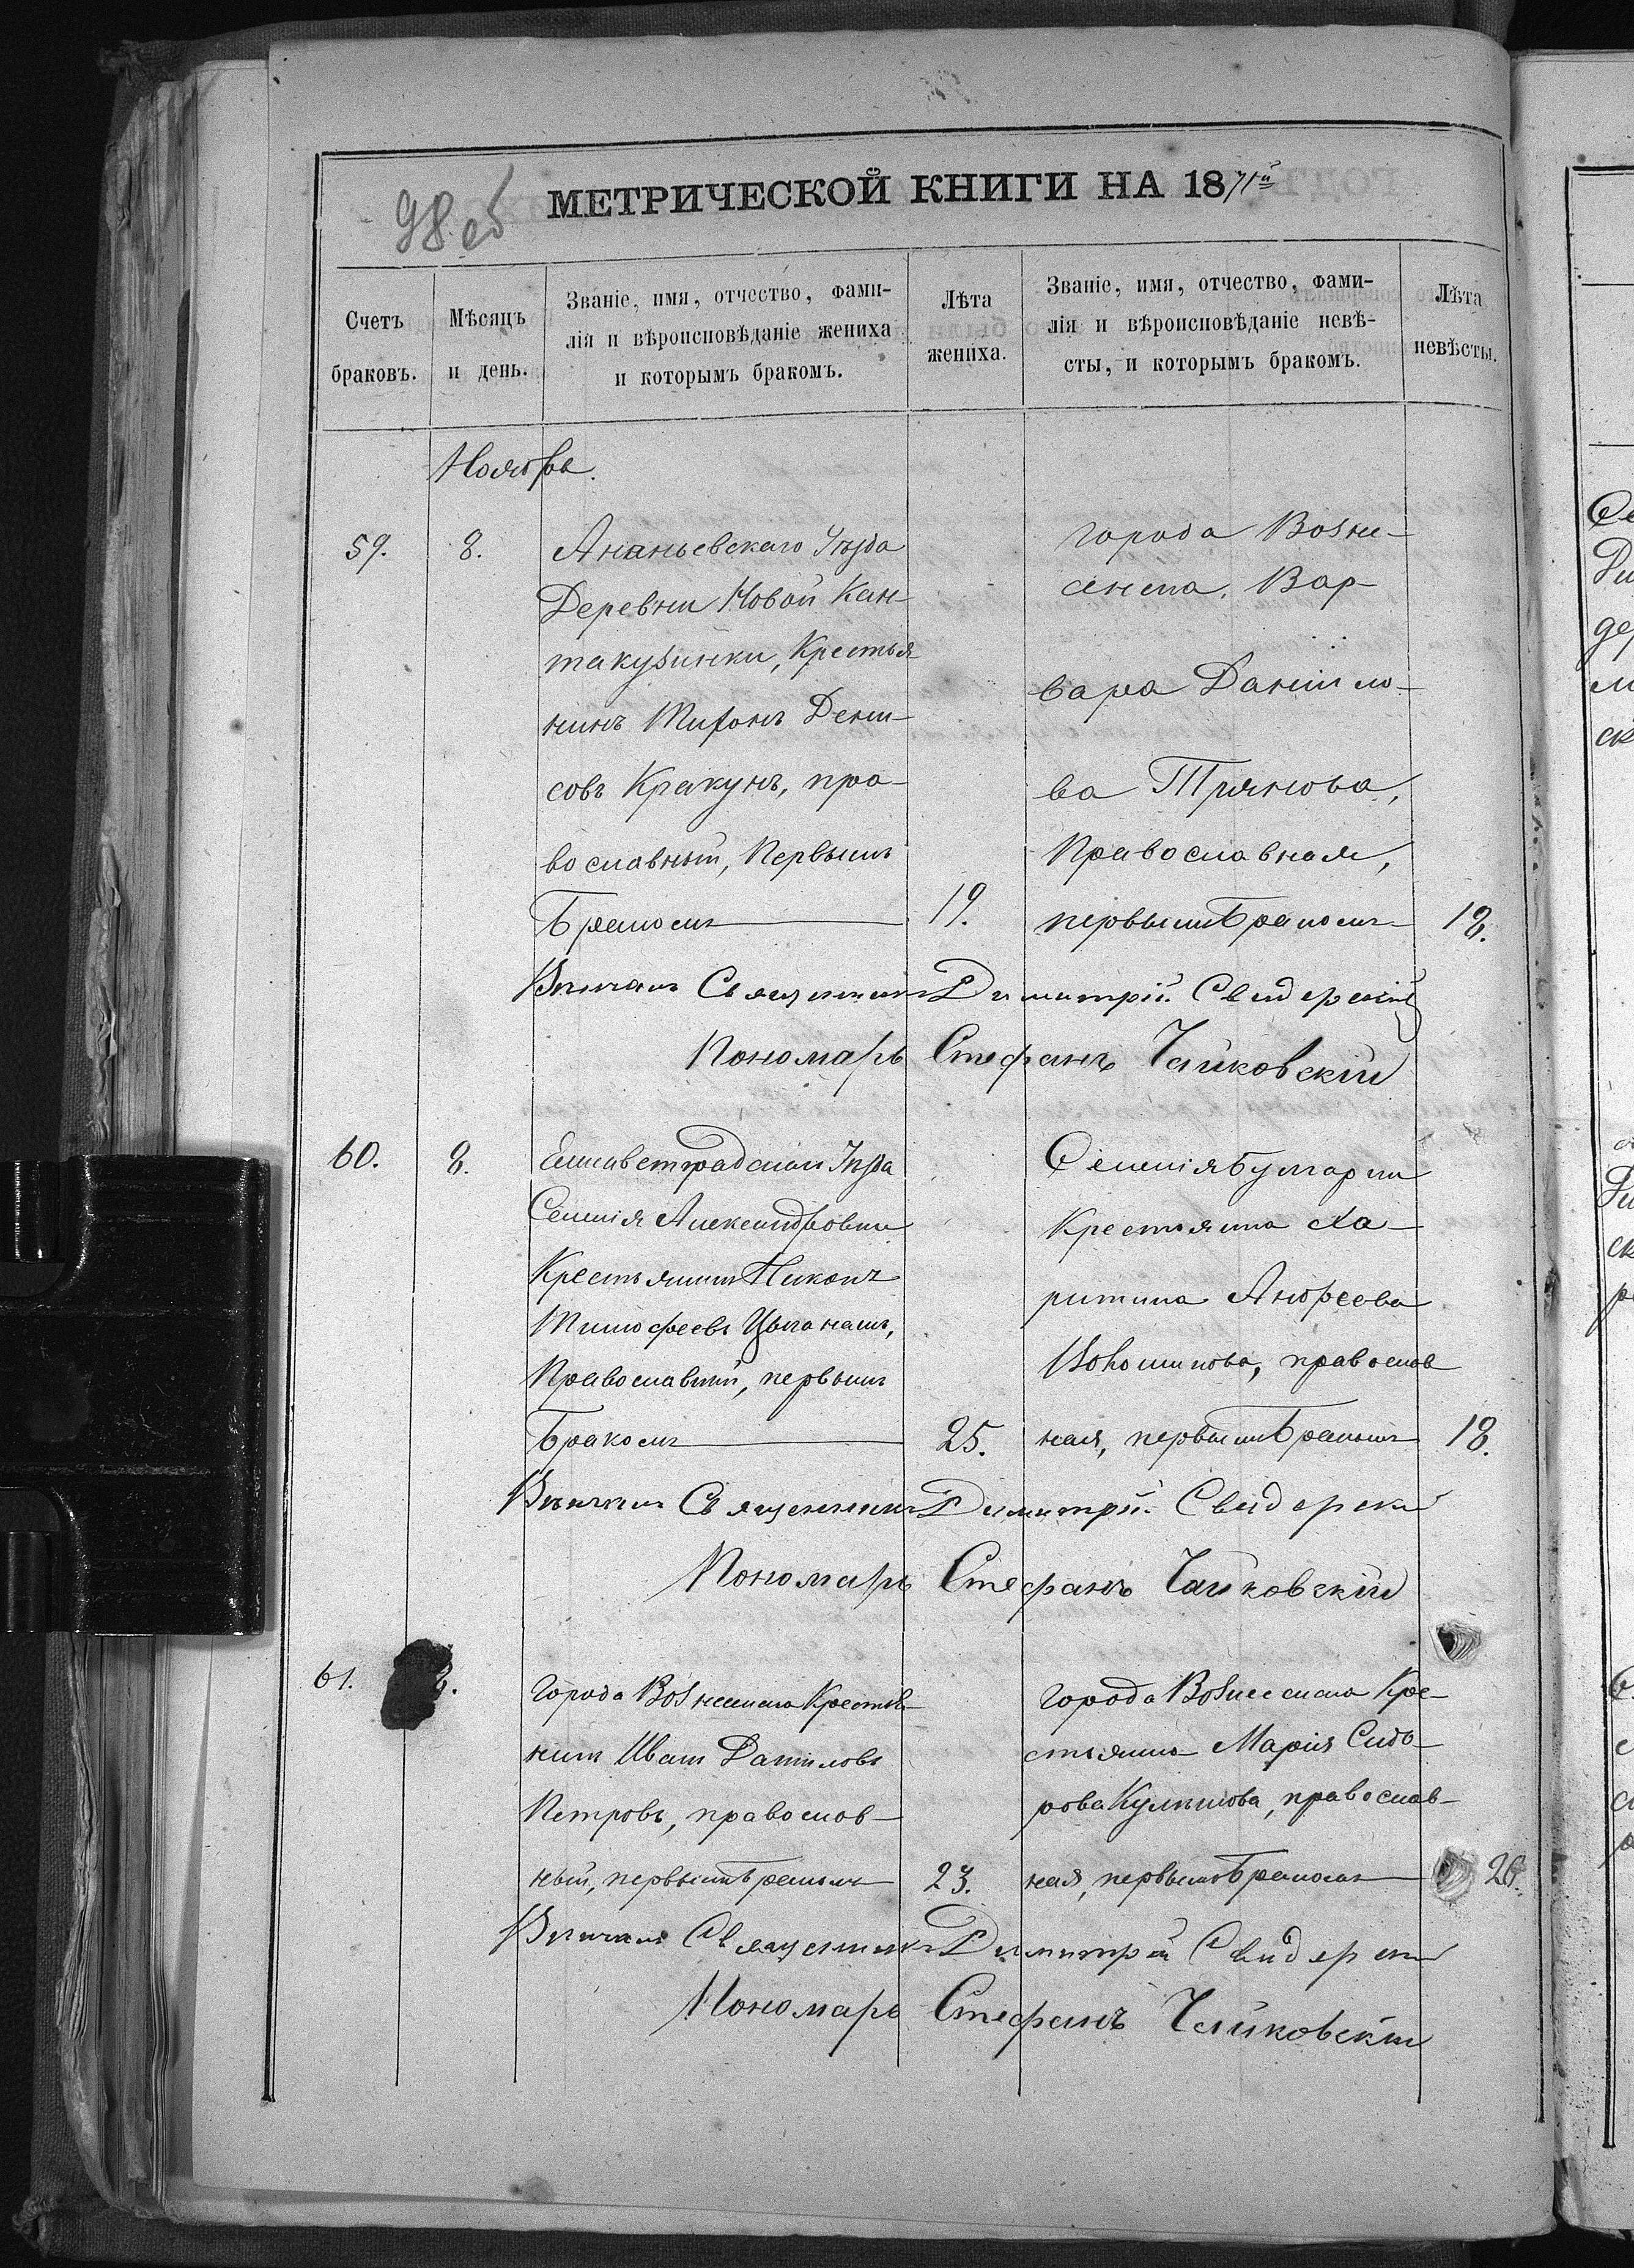 МЕТРИЧЕСКОЙ КНИГИ НА 1871й
98 об
Счетъ браковъ.
Мѣсяцъ и день.
Званіе, имя, отчество, фами-
лія и вѣроисповѣданіе жениха
и которымъ бракомъ.
Лѣта жениха.
Званіе, имя, отчество, фами-
лія и вѣроисповѣданіе невѣ-
сты, и которымъ бракомъ.
Лѣта невѣсты.
Ноябрь.
59.
8.
Ананьевскаго Уѣзда
Деревни Новой Кан-
такузинки, Крестья
нинъ Тифонъ Дени-
совъ Кракунъ, пра-
вославный, Первымъ
Бракомъ
19.
города Возне-
сенска. Вар-
вара Даніило-
ва Трянова,
Православная,
первымъ Бракомъ
18.
Вѣнчалъ Священникъ Димитрій Свидерскій
Пономарь Стефанъ Чайковскій
60.
8.
Елисаветградскаго Уѣзда
Селенія Александровки
Крестьянинъ Никонъ
Тимофеевъ Цыганашъ,
Православный, первымъ
Бракомъ
25.
Селенія Булгарки
Крестьянка Ха-
ритина Андреева
православ
ная, первымъ Бракомъ
18.
Вѣнчалъ Священникъ Димитрій Свидерскій
Пономарь Стефанъ Чайковскій
61.
8.
города Вознесенска Крестья-
нинъ Иванъ Даниловъ
Петровъ, православ-
ный, первымъ бракомъ
23.
города Вознесенска Кре-
стьянка Марія Сидо-
рова православ-
ная, первымъ Бракомъ
26.
Вѣнчалъ Священникъ Димитрій Свидерскій
Пономарь Стефанъ Чайковскій